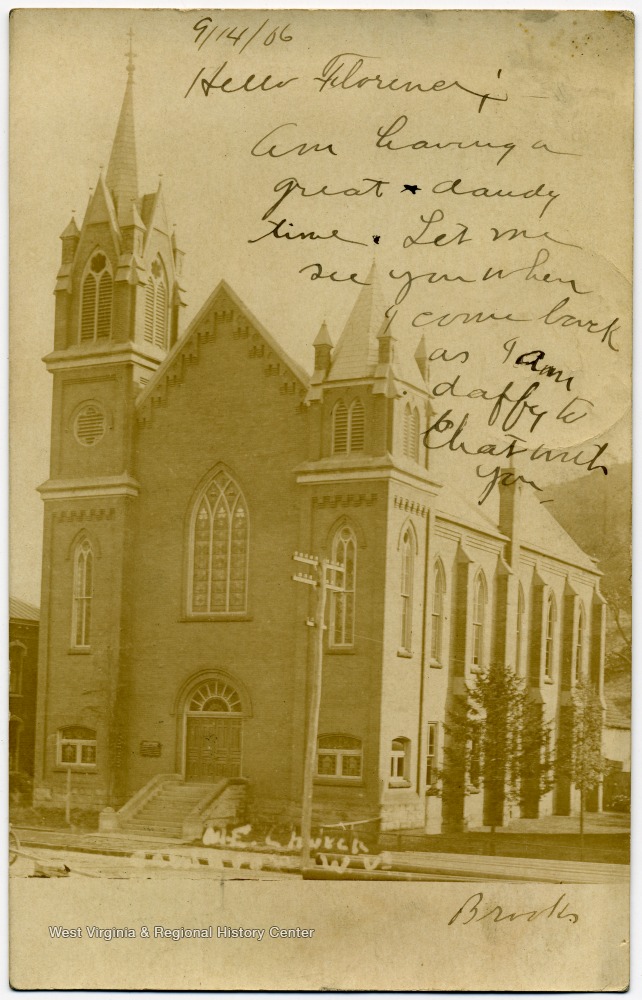 9/14/06
Hello Florence; -
Am having a
great dandy
time. Let me
see you when
I come back
as I am
daffy to
Chat with
you -
M.E. Church
W.V.
Brooks
West Virginia & Regional History Center